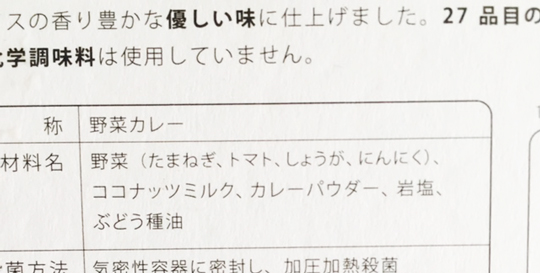 スの香り豊かな優しい味に仕上げました。27 品目の
化学調味料は使用していません。
称 野菜カレー
材料名 野菜（たまねぎ、トマト、しょうが、にんにく）、
ココナッツミルク、カレーパウダー、岩塩、
ぶどう種油
殺菌方法 気密性容器に密封し、加圧加熱殺菌